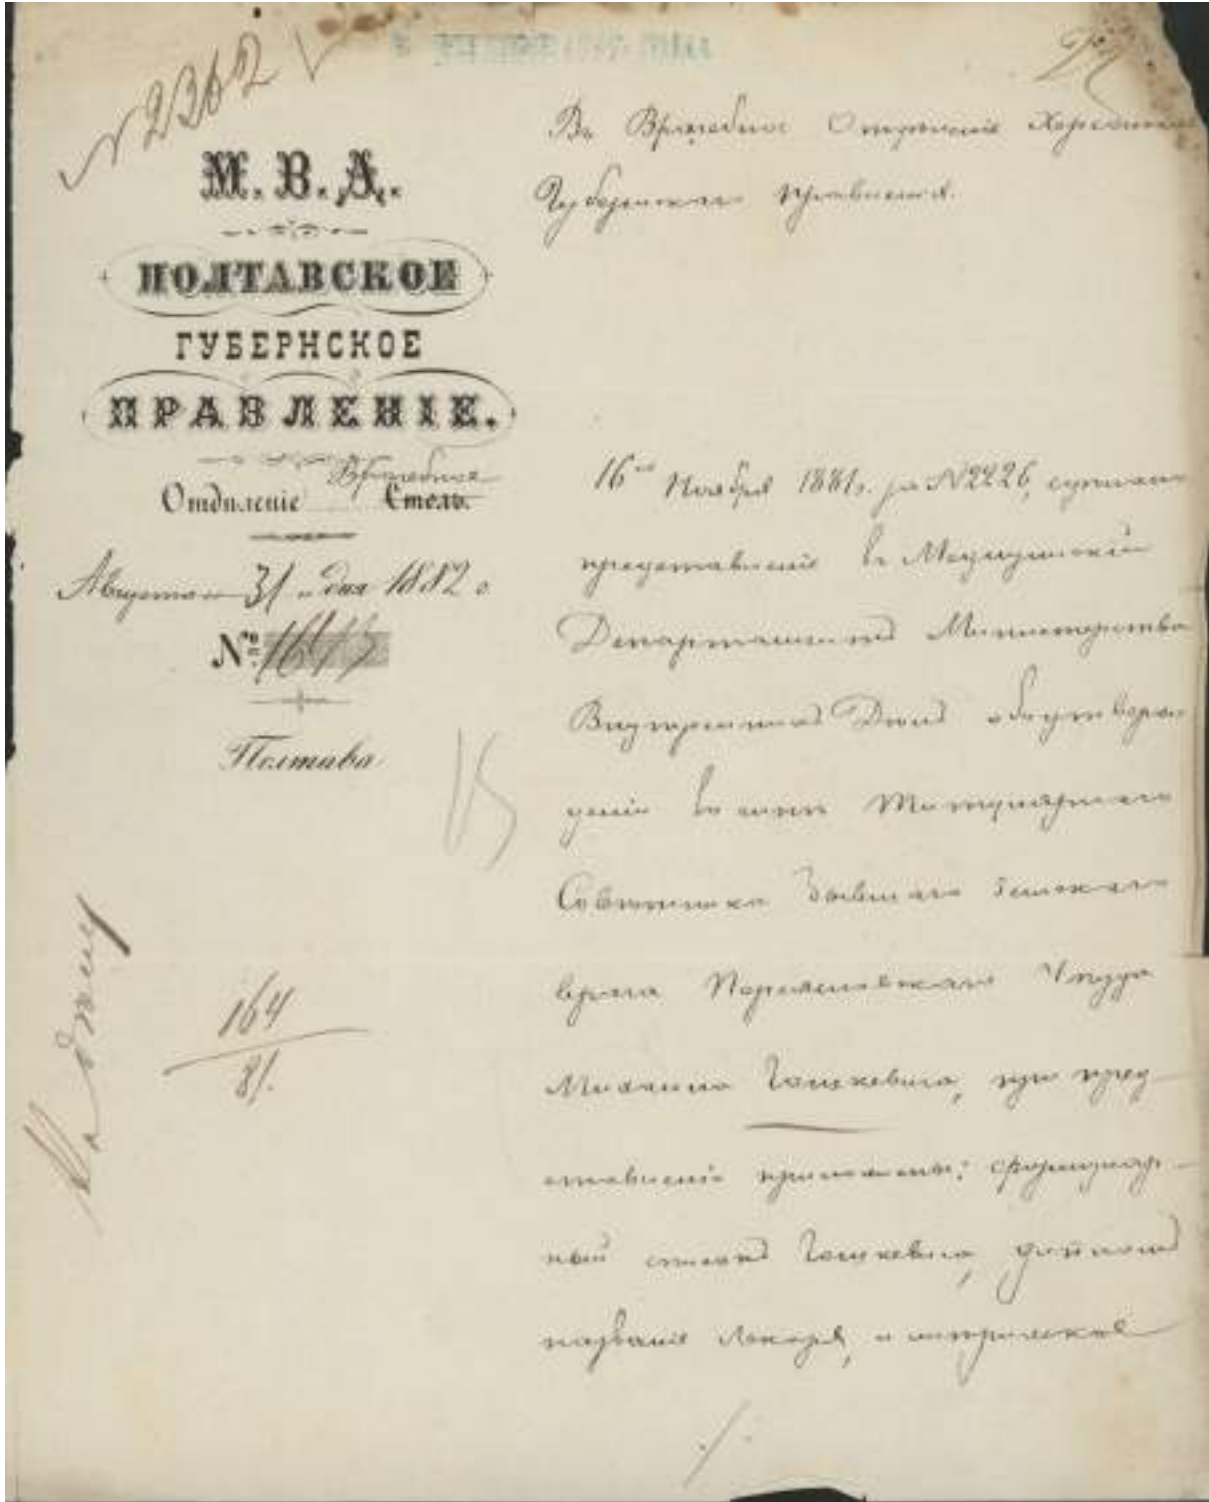 № 2362
М. В. Д.
ПОЛТАВСКОЕ
ГУБЕРНСКОЕ
ПРАВЛЕНІЕ.
Врачебное
Отдѣленіе Столъ.
Августа 31 дня 1882 г.
№
Полтава
164
81.
Въ Врачебное Отдѣленіе Херсонскаго
Губернскаго Правленія.
16го Ноября 1881 г. за № 2226,
представленіе въ Медицинскій
Департаментъ Министерства
Внутреннихъ Дѣлъ объ утверж
деніи въ чинѣ Титулярнаго
Совѣтника бывшаго земскаго
врача Переяславскаго Уѣзда
Михаила Гошкевича, при пред
ставленіи приложены: формуляр
ный списокъ Гошкевича, дипломъ
названіе Лекаря, и метрическое